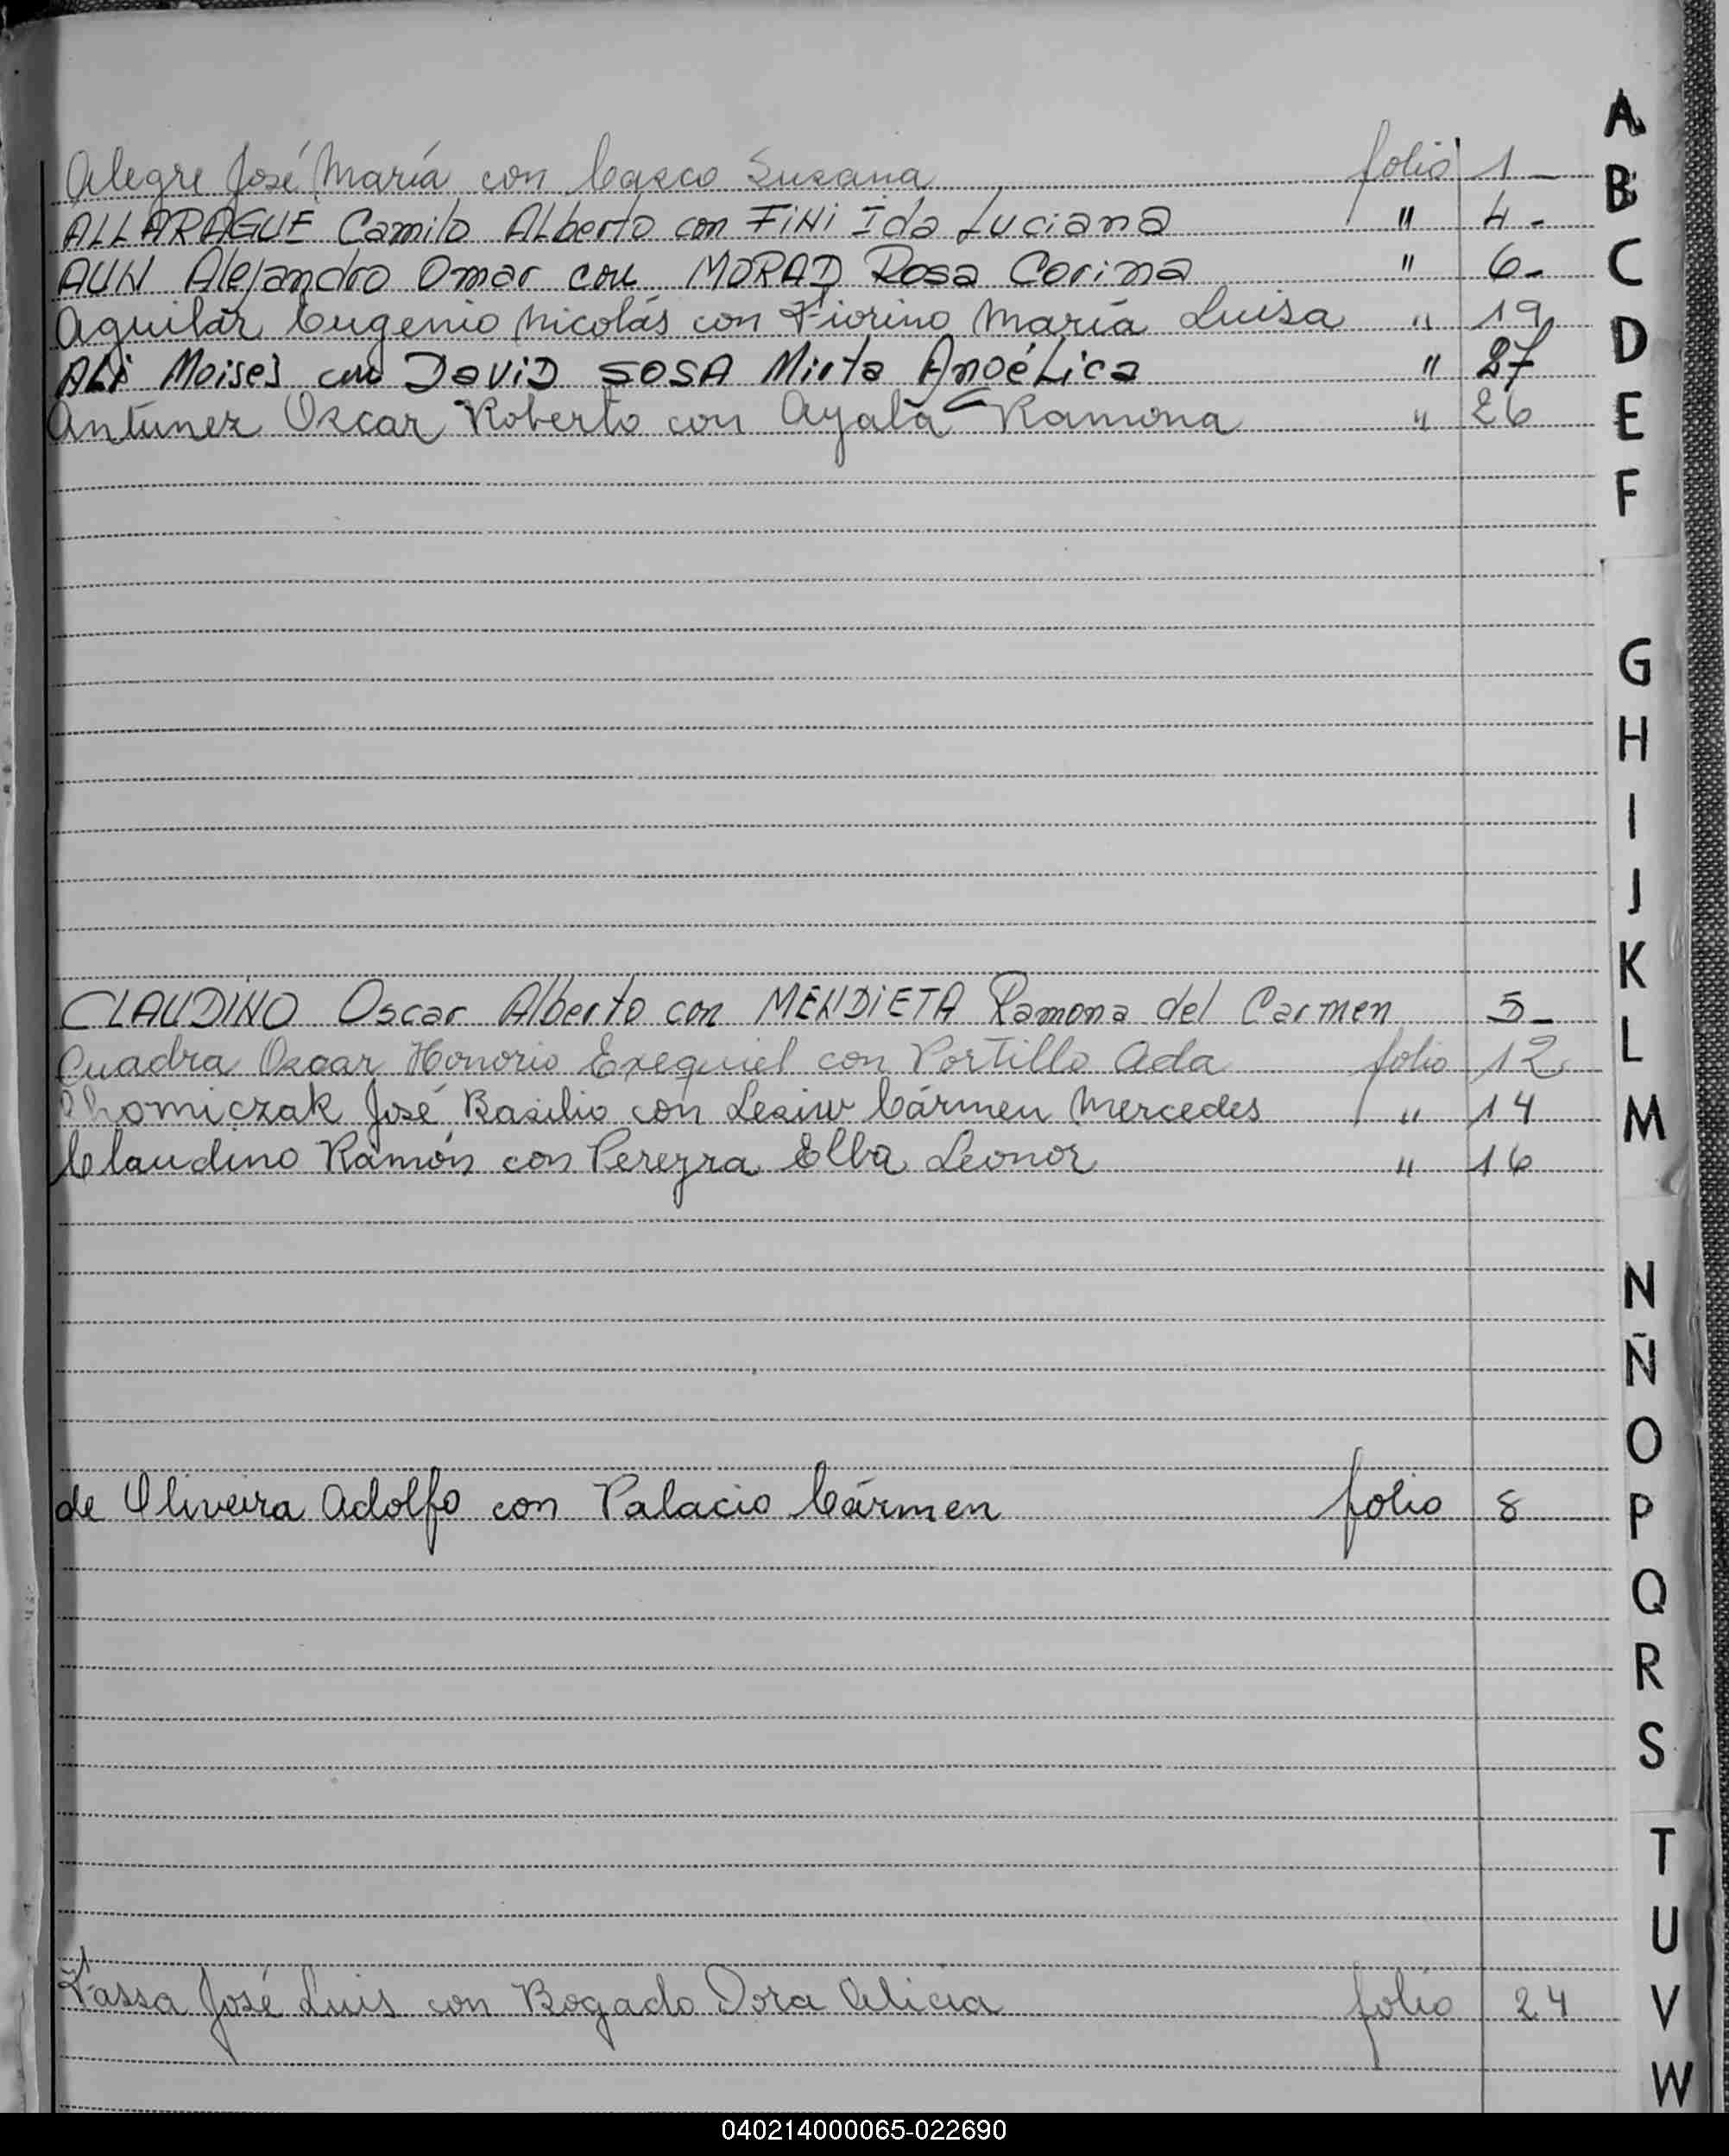 Alegre José María con Casco Susana folio 1 -
ALLARAGUE Camilo Alberto con FiNi Ida Luciana " 4 -
AUN Alejandro Omar con MORAD Rosa Corina " 6 -
Aguilar Eugenio Nicolás con Fiorino María Luisa " 19
ALÍ Moises con DaviD SOSA Mirta AngéLica " 27
Antunez Oscar Roberto con Ayala Ramona " 26
CLAUDiNO Oscar Alberto con MENDiETA Ramona del Carmen 5 -
Cuadra Oscar Honorio Exequiel con Portillo Ada folio 12
Chomiczak José Basilio con Lesiw Cármen Mercedes " 14
Claudino Ramón con Pereyra Elba Leonor " 16
de Oliveira Adolfo con Palacio Cármen folio 8
Fassa José Luis con Bogado Dora Alicia folio 24
A
B
C
D
E
F
G
H
I
J
K
L
M
N
Ñ
O
P
Q
R
S
T
U
V
W
040214000065-022690